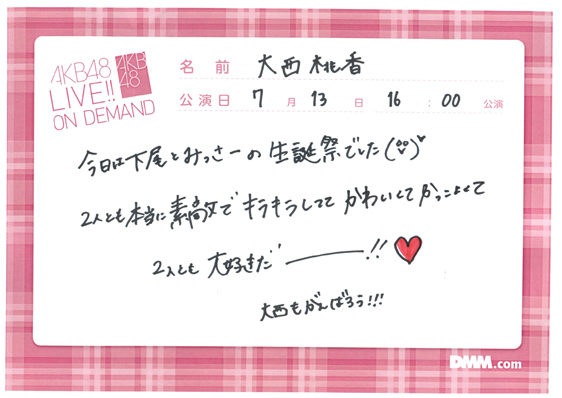 AKB48
LIVE!!
ON DEMAND
AKB
48
名前 大西桃香
公演日 7月13日 16:00公演
今日は下尾とみっさーの生誕祭でした
2人とも本当に素敵でキラキラしてて かわいくて かっこよくて
2人とも 大好きだーーー!!
大西もがんばろう!!!
DMM.com